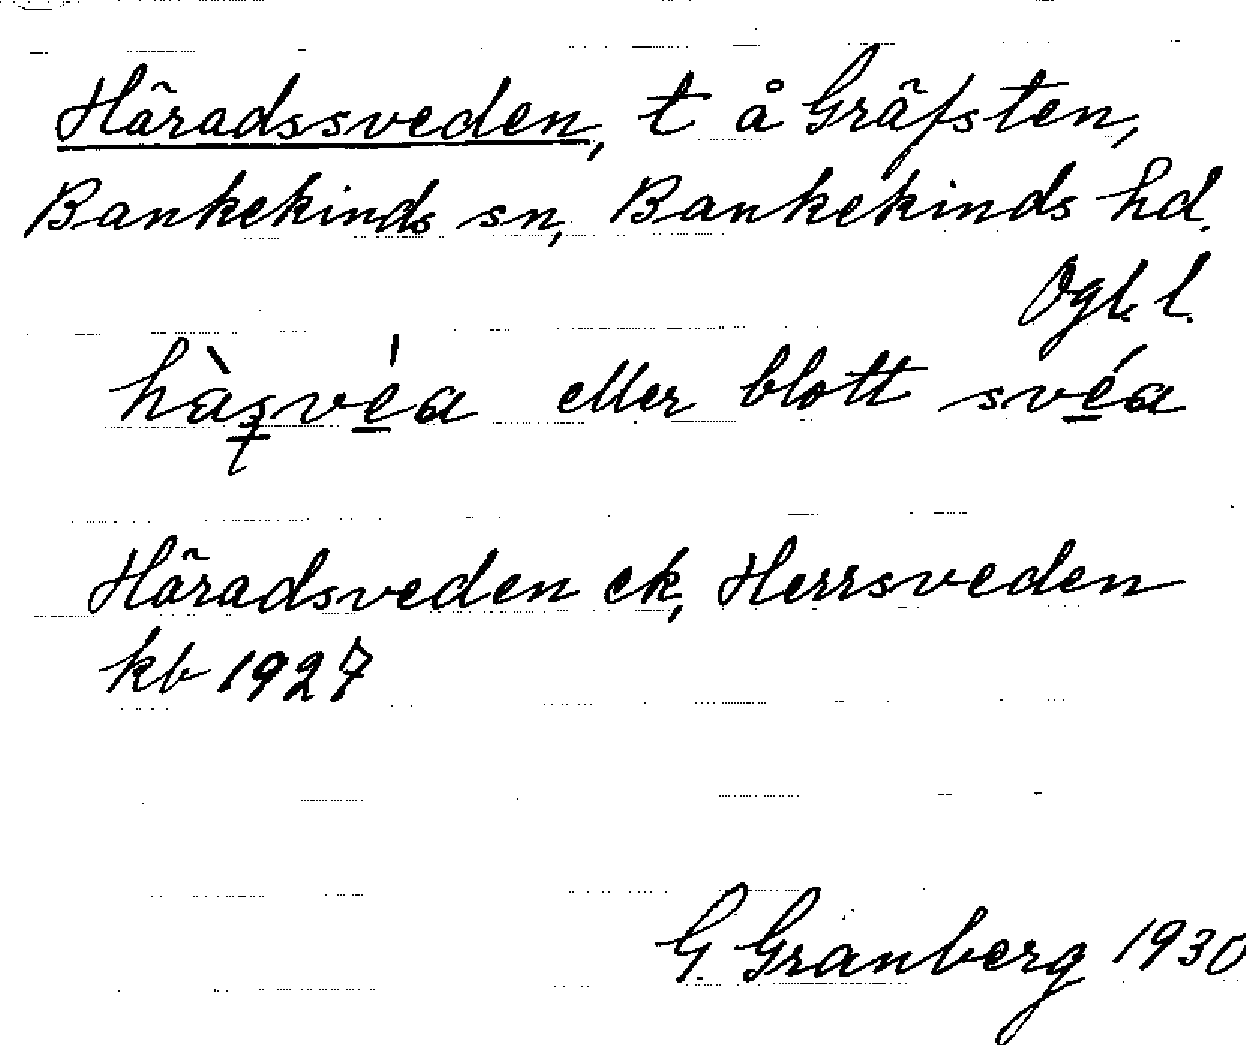 Häradssveden, t å Gräfsten,
Bankekinds sn, Bankekinds hd.
Ögl. l.
hàsvéa eller blott svéa
Häradsveden ek, Herrsveden
kb 1927
G. Granberg 1930